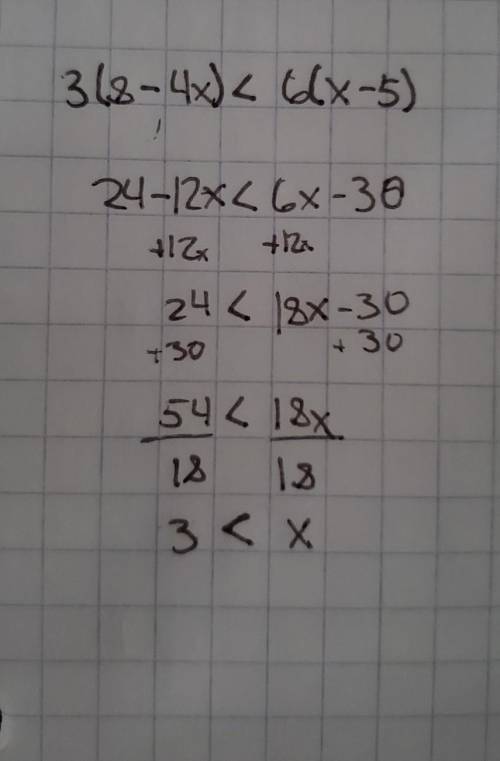 3(8-4x)< 6(x-5)
24-12x< 6x-30
+12x +12x
24 < 18x-30
+30 + 30
54 < 18x
18 18
3 < x